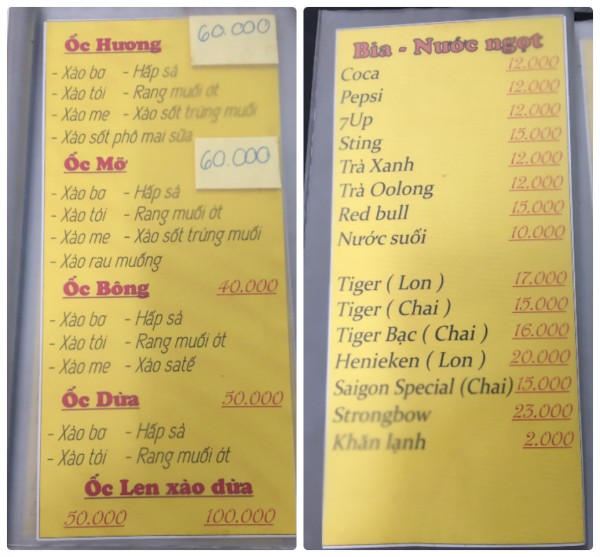 Ốc Hương 60.000
- Xào bơ - Hấp sả
- Xào tỏi - Rang muối ớt
- Xào me - Xào sốt trứng muối
- Xào sốt phô mai sữa
Ốc Mỡ 60.000
- Xào bơ - Hấp sả
- Xào tỏi - Rang muối ớt
- Xào me - Xào sốt trứng muối
- Xào rau muống
Ốc Bông 40.000
- Xào bơ - Hấp sả
- Xào tỏi - Rang muối ớt
- Xào me - Xào satế
Ốc Dừa 50.000
- Xào bơ - Hấp sả
- Xào tỏi - Rang muối ớt
Ốc Len xào dừa
50.000 100.000
Bia - Nước ngọt
Coca 12.000
Pepsi 12.000
7Up 12.000
Sting 15.000
Trà Xanh 12.000
Trà Oolong 12.000
Red bull 15.000
Nước suối 10.000
Tiger ( Lon ) 17.000
Tiger ( Chai ) 15.000
Tiger Bạc ( Chai ) 16.000
Henieken ( Lon ) 20.000
Saigon Special (Chai) 15.000
Strongbow 23.000
Khăn lạnh 2.000